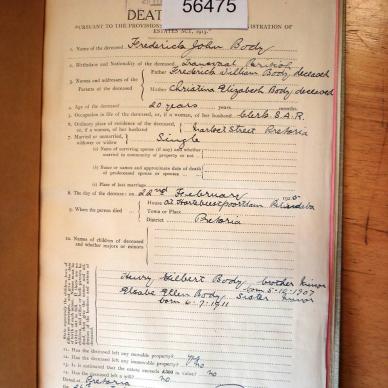 56475
DEAT
PURSUANT TO THE PROVISIONS ISTRATION OF
ESTATES ACT, 1913.
1. Name of the deceased Frederick John Body
2. Birthplace and Nationality of the deceased Transvaal British
3. Names and addresses of the Parents of the deceased
Father Frederick William Body, deceased
Mother Christina Elizabeth Body deceased
4. Age of the deceased 20 years months.
5. Occupation in life of the deceased, or if a woman, of her husband Clerk S.A.R.
6. Ordinary place of residence of the deceased, or, if a woman, of her husband Market Street Pretoria
7. Married or unmarried, widower or widow Single
(a) Name of surviving spouse (if any) and whether married in community of property or not
(b) Name or names and approximate date of death of predeceased spouse or spouses
(c) Place of last marriage
8. The day of the decease: on 22nd February 192
9. Where the person died
House At Hartebeestpoortdam
Town or Place
District Pretoria
10. Names of children of deceased and whether majors or minors
Henry Gilbert Body, brother minor
born 5-12-1907
Ellen Body, Sister minor
born 6-7-1911
11. Has the deceased left any movable property? yes
12. Has the deceased left any immovable property? no
13. Is it estimated that the estate exceeds £300 in value? no
14. Has the deceased left a will? no
Dated at Pretoria